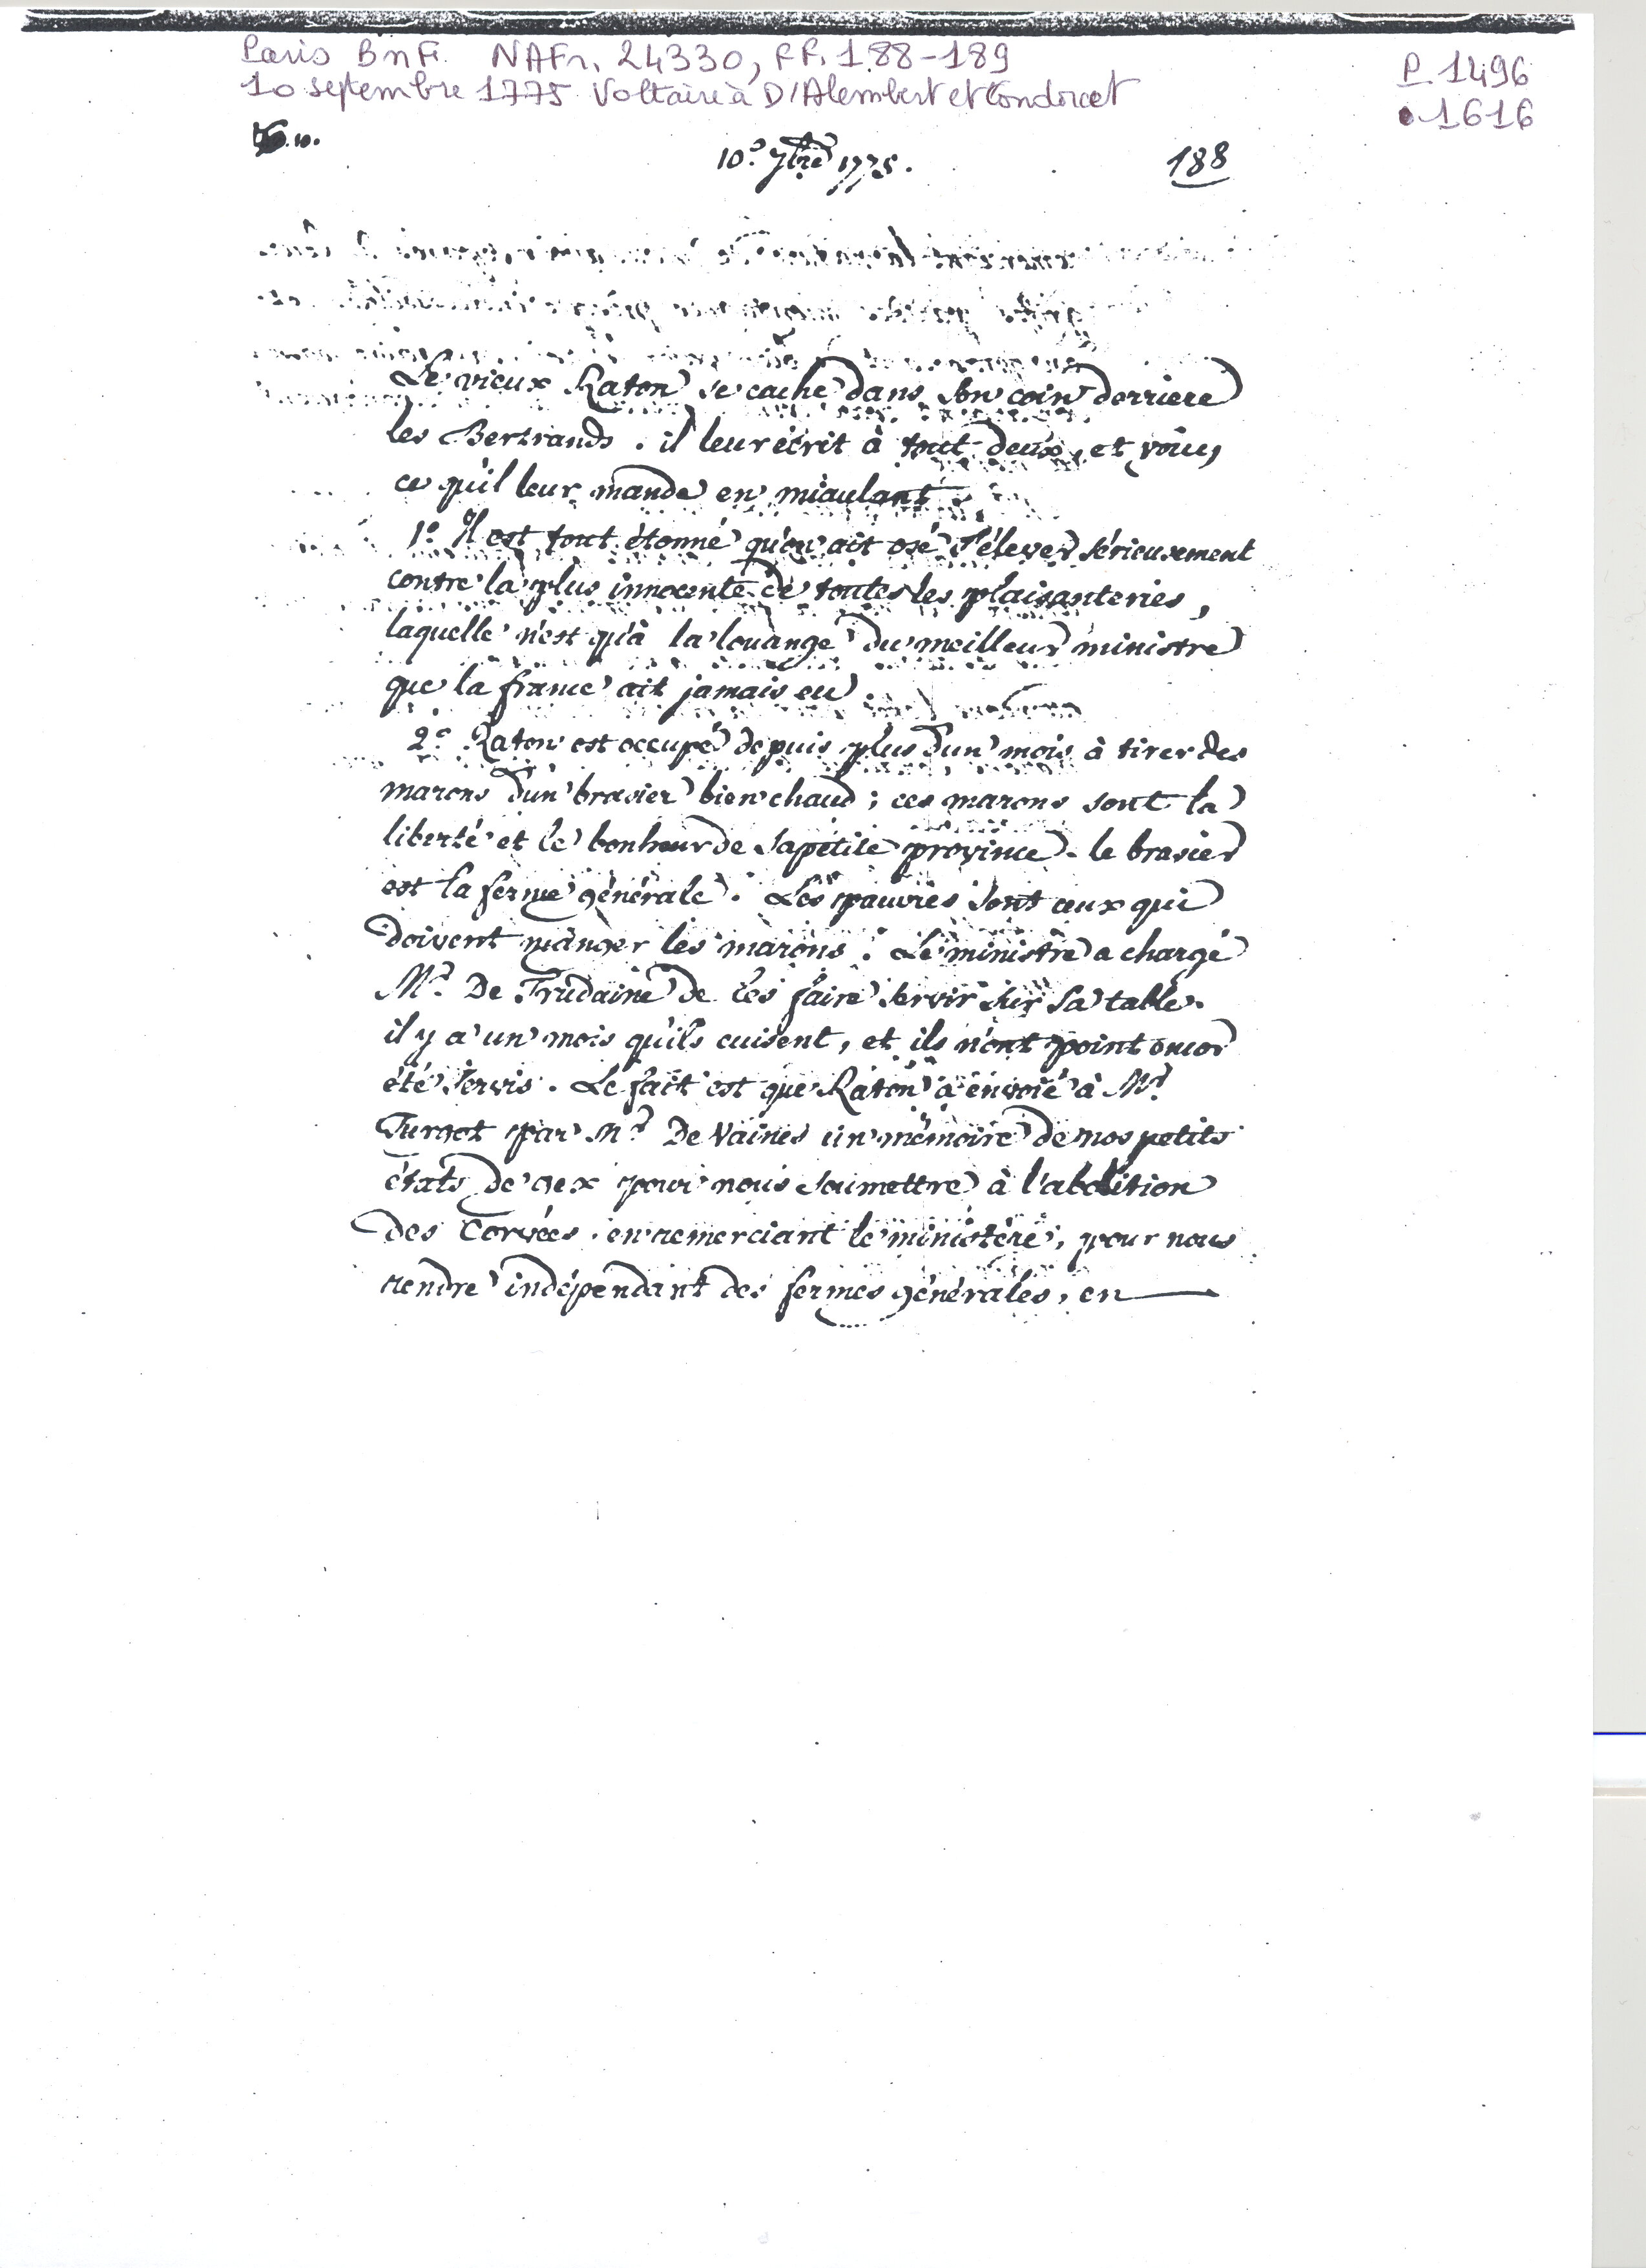 Paris BnF. NAFr. 24330, FF. 188-189
P. 1496
10 septembre 1775 Voltaire à D'Alembert et Condorcet
1616
10.
10.e 7bre 1775.
188
Le vieux Raton se cache dans son coin derriere
les Bertrands. il leur écrit à tout deux, et voicy
ce qu'il leur mande en miaulant.
1.o Il est tout étonné qu'on ait osé s'élever sérieusement
contre la plus innocente de toutes les plaisanteries,
laquelle n'est qu'à la louange du meilleur ministre
que la france ait jamais eu.
2.o Raton est occupé depuis plus d'un mois à tirer des
marons d'un brasier bien chaud; ces marons sont la
liberté et le bonheur de sa petite province. le brasier
est la ferme générale. Les pauvres sont ceux qui
doivent manger les marons. Le ministre a chargé
Mr. De Trudaine de les faire servir sur sa table.
il y a un mois qu'ils cuisent, et ils n'ont point encor
été servis. Le fait est que Raton a envoié à Mr.
Turgot par Mr. De Vaines un mémoire de nos petits
états de gex pour nous soumettre à l'abolition
des Corvées en remerciant le ministère, pour nous
rendre indépendant des fermes générales, en